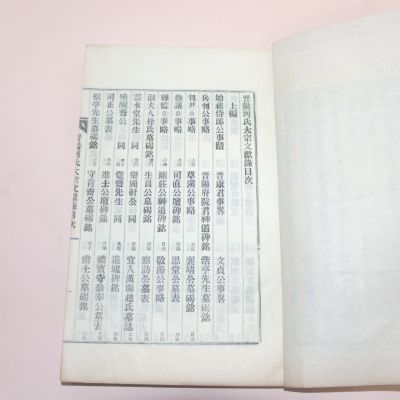 晋陽河氏大宗文獻錄目次
上編
始祖侍郎公事蹟
晋康君事畧
文貞公事畧
兵判公事略
晋陽府院君神道碑銘
浩亭先生墓碣銘
判尹公事略
草溪公事略
襄靖公墓碣銘
參議公事略
司直公壇碑銘
思堂公墓表
縣監公事略
剛莊公神道碑銘
敬節公事略
淑夫人朴氏墓碣銘
生員公墓碣銘
察訪公墓表
雲水堂先生 同
樂國軒公 同
宜人漢陽趙氏墓誌
喚醒齋公 同
覺齋先生 同
遺墟碑銘
司正公墓表
進士公壇碑銘
禮賓寺參奉公墓表
松亭先生墓碣銘
守肯齋公墓碣銘
處士公墓碣銘
晋陽河氏大宗文獻錄目次